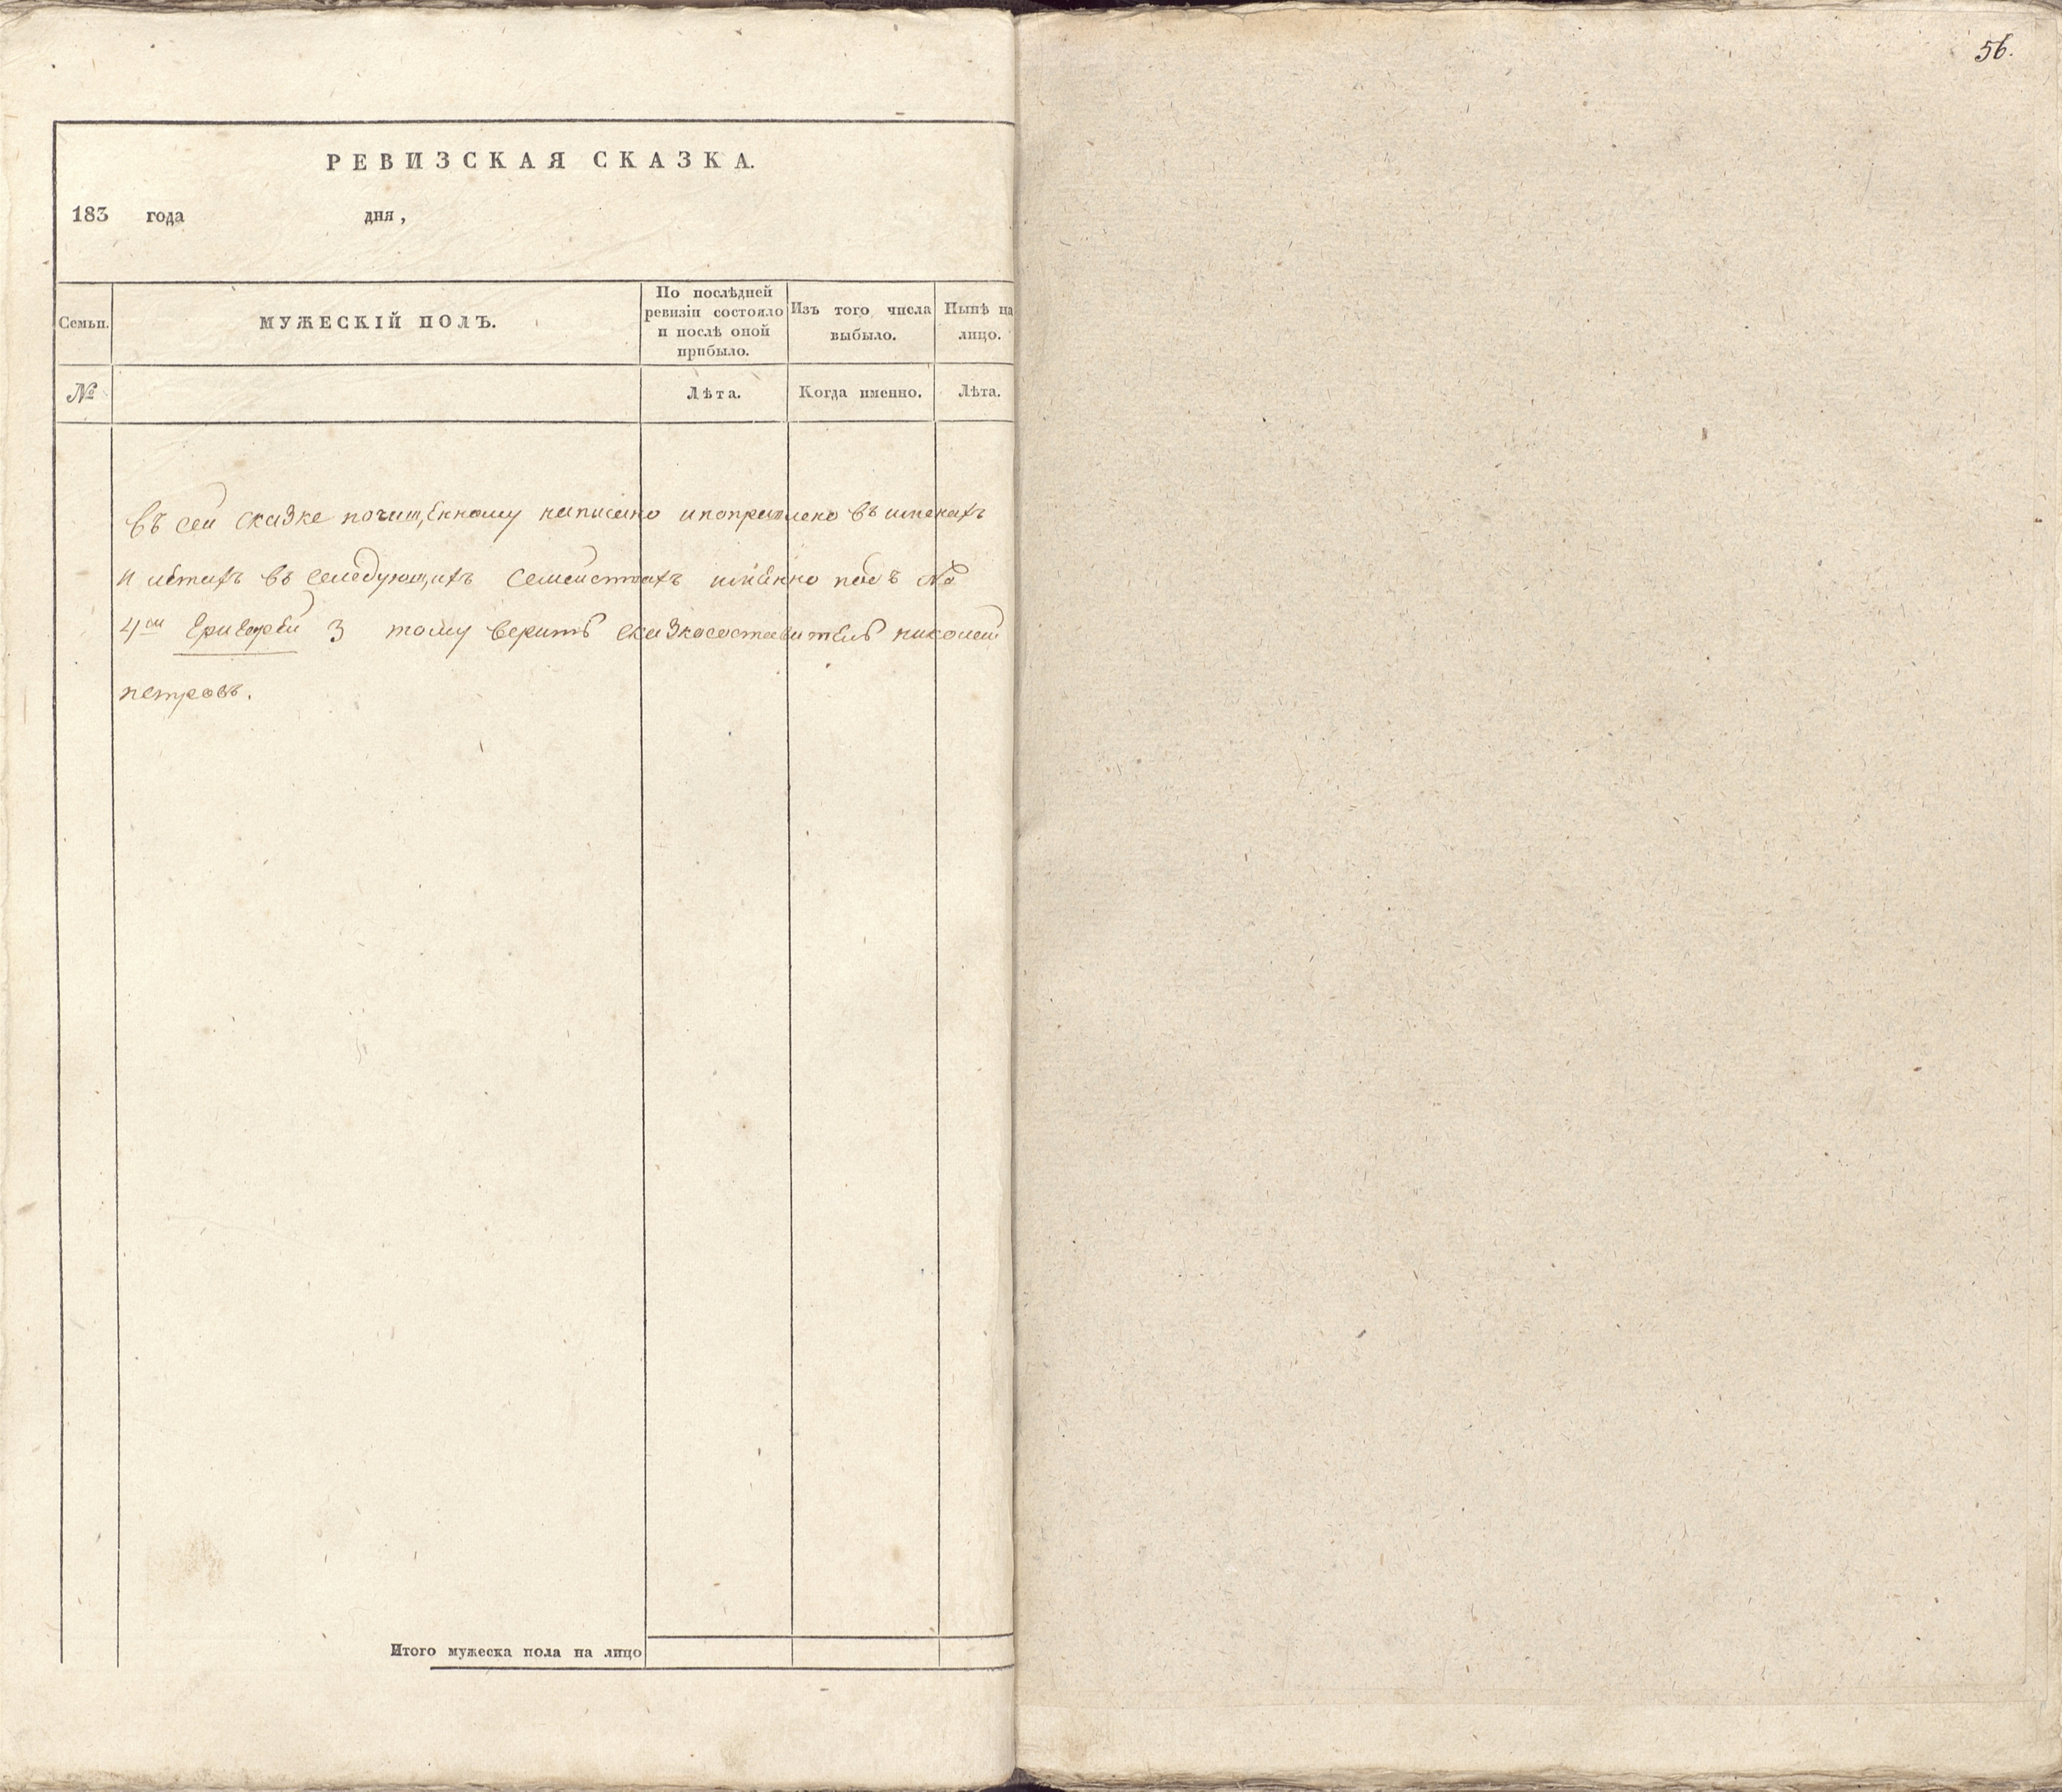 56.
РЕВИЗСКАЯ СКАЗКА.
183 года дня,
Семьи.
МУЖЕСКІЙ ПОЛЪ.
По послѣдней
ревизіи состояло
и послѣ оной
прибыло.
Изъ того числа
выбыло.
Нынѣ на
лицо.
№
Лѣта.
Когда именно.
Лѣта.
въ сей сказке почищенному написано ипоправлено въ именахъ
и летахъ въ следующихъ семействахъ имянно подъ №
4ом 3 тому веритъ сказкосоставитель николай
петровъ.
Итого мужеска пола на лицо